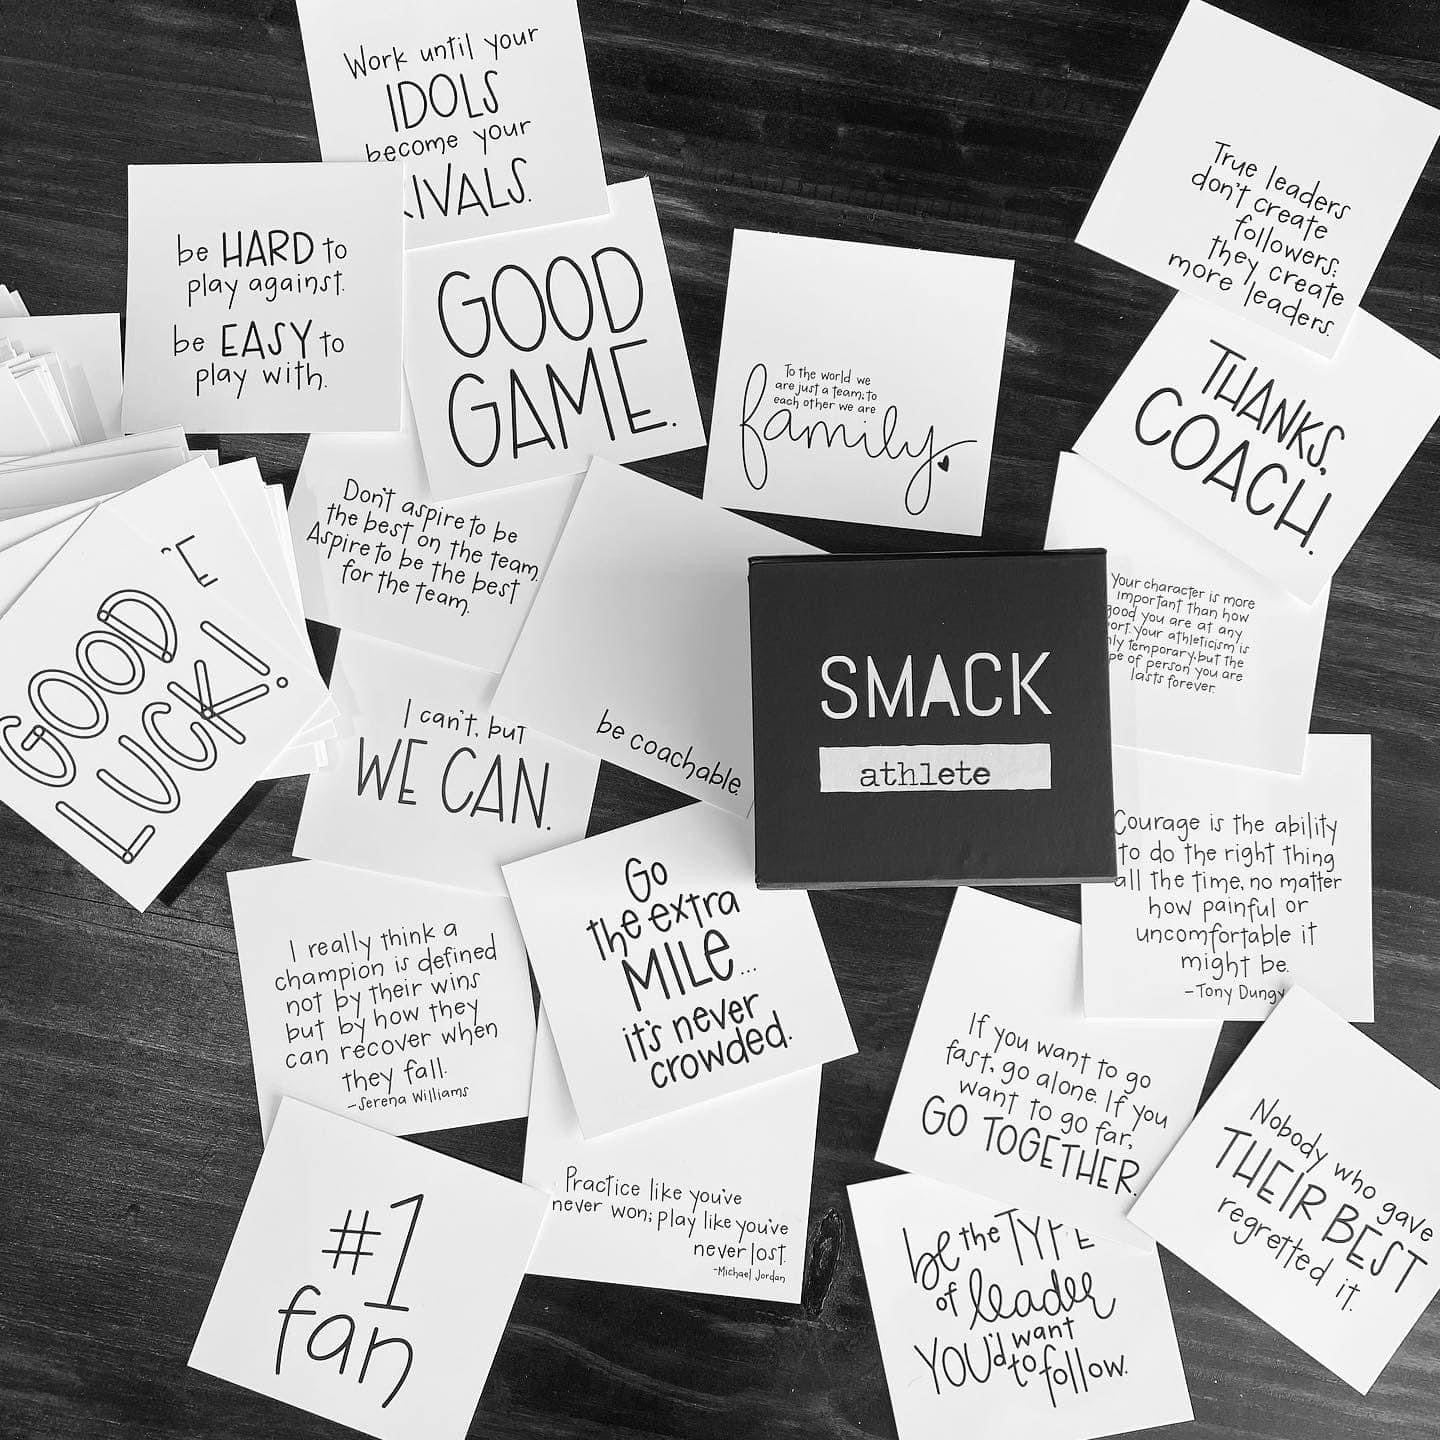 Work until your
IDOLS
become your
RIVALS.
be HARD to
play against.
be EASY to
play with.
GOOD
GAME.
To the world we
are just a team; to
each other we are
family.
True leaders
don't create
followers;
they create
more leaders.
THANKS,
COACH.
Don't aspire to be
the best on the team.
Aspire to be the best
for the team.
GOOD
LUCK!
I can't, but
WE CAN.
be coachable.
SMACK
athlete
Your character is more
important than how
good you are at any
Your athleticism is
temporary, but the
of person you are
lasts forever.
Courage is the ability
to do the right thing
all the time, no matter
how painful or
uncomfortable it
might be.
-Tony Dungy
I really think a
champion is defined
not by their wins
but by how they
can recover when
they fall.
-Serena Williams
Go
the extra
MILE...
it's never
crowded.
If you want to go
fast, go alone. If you
want to go far,
GO TOGETHER.
Nobody who gave
THEIR BEST
regretted it.
#1
fan
Practice like you've
never won; play like you've
never lost.
-Michael Jordan
be the TYPE
of leader
YOU'd want
to follow.